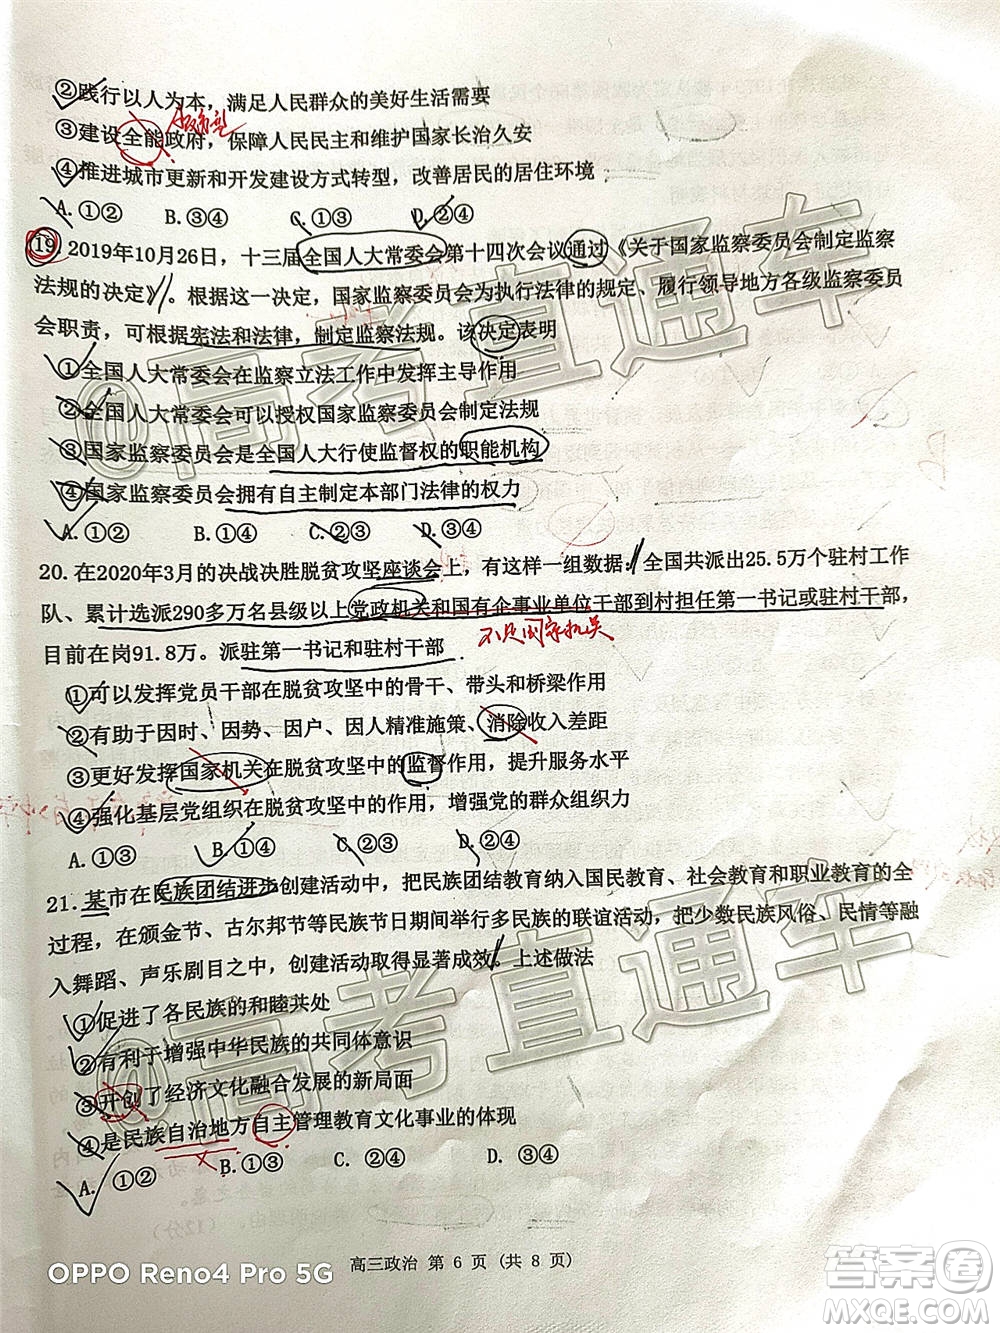 ②践行以人为本，满足人民群众的美好生活需要
服务型
③建设全能政府，保障人民民主和维护国家长治久安
④推进城市更新和开发建设方式转型，改善居民的居住环境
A. ①② B. ③④ C. ①③ D. ②④
19. 2019年10月26日，十三届全国人大常委会第十四次会议通过《关于国家监察委员会制定监察
法规的决定》。根据这一决定，国家监察委员会为执行法律的规定、履行领导地方各级监察委员
会职责，可根据宪法和法律，制定监察法规。该决定表明
①全国人大常委会在监察立法工作中发挥主导作用
②全国人大常委会可以授权国家监察委员会制定法规
③国家监察委员会是全国人大行使监督权的职能机构
④国家监察委员会拥有自主制定本部门法律的权力
A. ①② B. ①④ C. ②③ D. ③④
20. 在2020年3月的决战决胜脱贫攻坚座谈会上，有这样一组数据：全国共派出25.5万个驻村工作
队、累计选派290多万名县级以上党政机关和国有企事业单位干部到村担任第一书记或驻村干部，
不是国家机关
目前在岗91.8万。派驻第一书记和驻村干部
①可以发挥党员干部在脱贫攻坚中的骨干、带头和桥梁作用
②有助于因时、因势、因户、因人精准施策，消除收入差距
③更好发挥国家机关在脱贫攻坚中的监督作用，提升服务水平
④强化基层党组织在脱贫攻坚中的作用，增强党的群众组织力
A. ①③ B. ①④ C. ②③ D. ②④
21. 某市在民族团结进步创建活动中，把民族团结教育纳入国民教育、社会教育和职业教育的全
过程，在颁金节、古尔邦节等民族节日期间举行多民族的联谊活动，把少数民族风俗、民情等融
入舞蹈、声乐剧目之中，创建活动取得显著成效。上述做法
①促进了各民族的和睦共处
②有利于增强中华民族的共同体意识
③开创了经济文化融合发展的新局面
④是民族自治地方自主管理教育文化事业的体现
A. ①② B. ①③ C. ②④ D. ③④
高三政治 第 6 页 (共 8 页)
OPPO Reno4 Pro 5G
@高考直通车
@高考直通车
答案圈
MXQE.COM